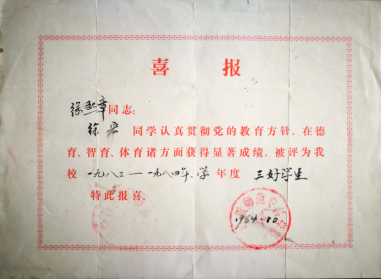 喜报
徐 章同志:
徐 同学认真贯彻党的教育方针,在德
育、智育、体育诸方面获得显著成绩,被评为我
校一九八三—一九八四年.学年度 三好学生
特此报喜.
1984.10